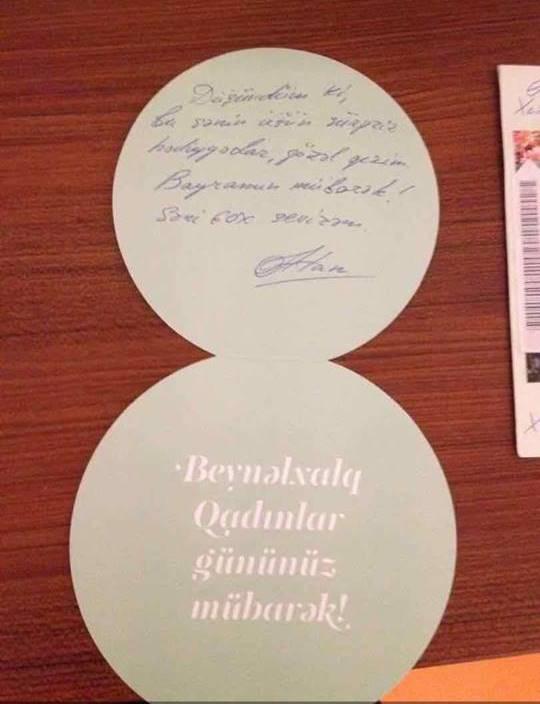 Düşündüm ki,
bu sənin üçün sürpriz
hədiyyədlər, gözəl qızım
Bayramın mübarək!
Səni çox sevirəm.
Beynəlxalq
Qadınlar
gününüz
mübarək!